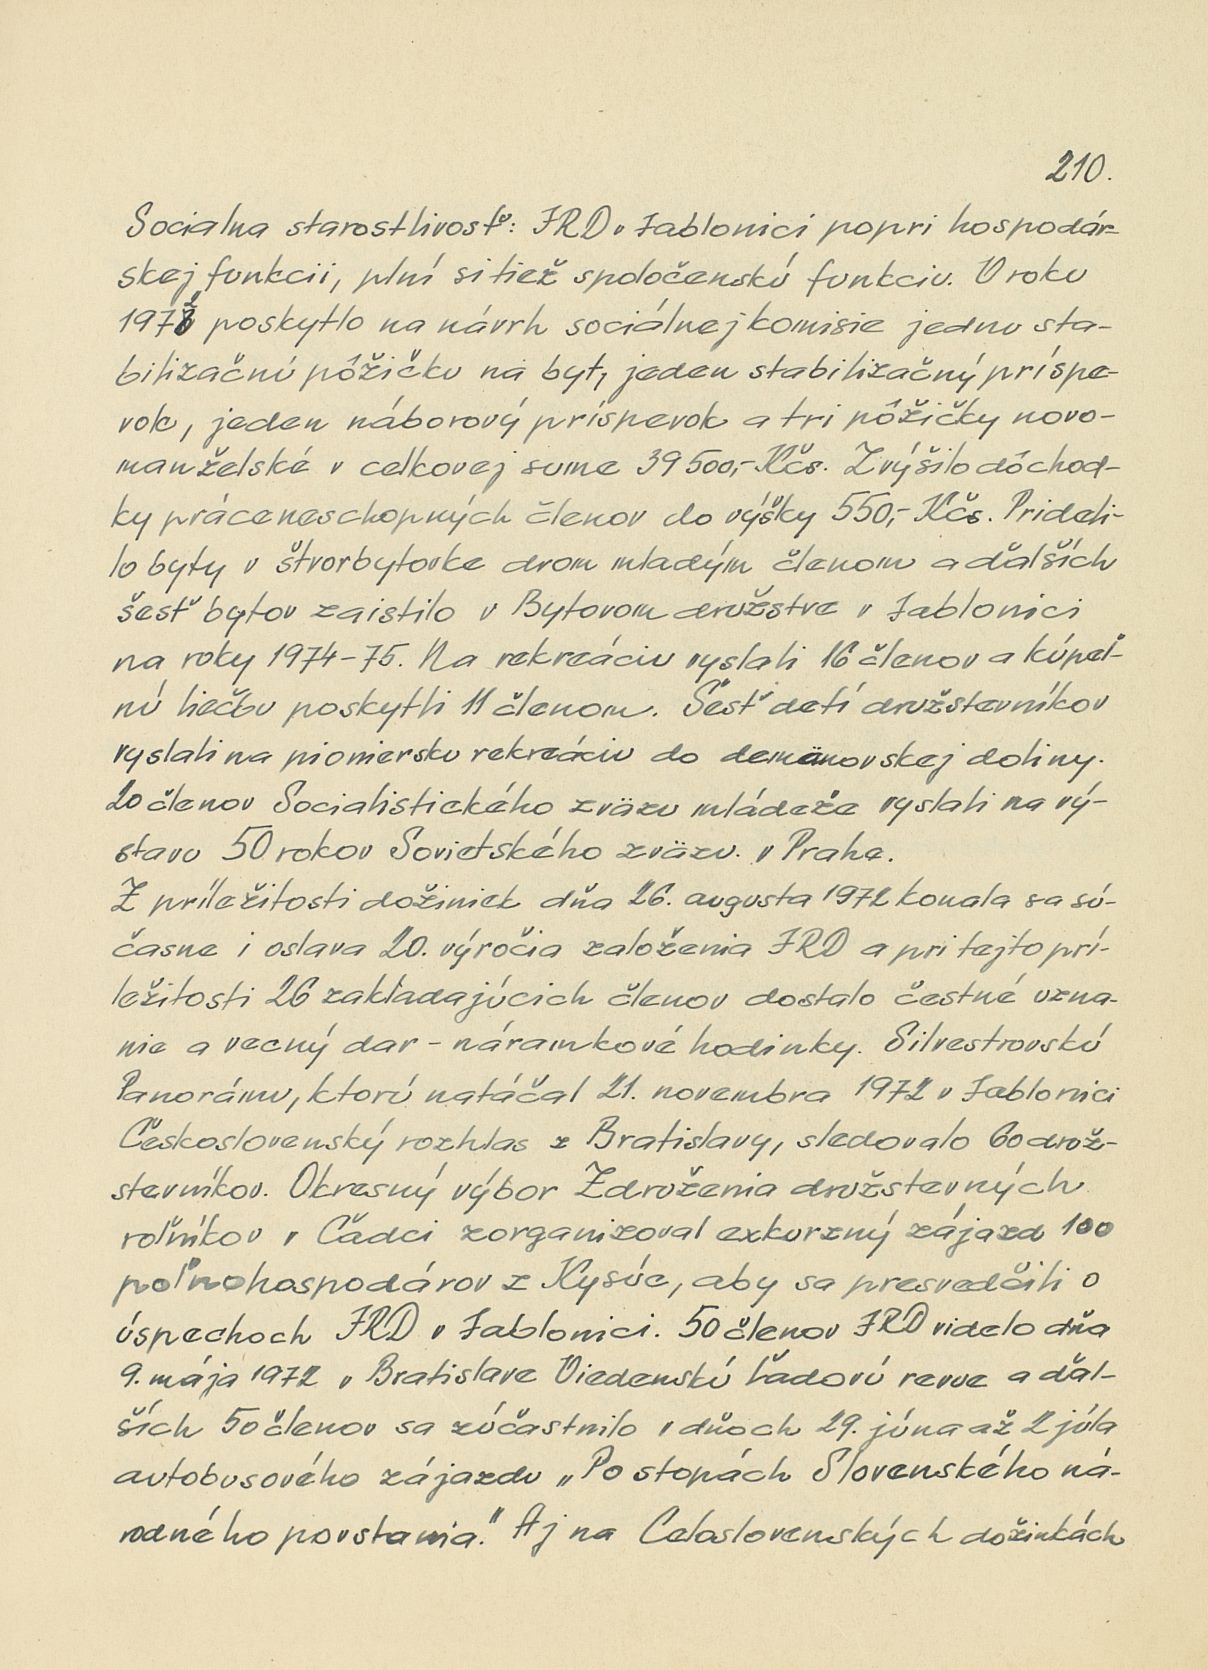 210.
Socialna starostlivosť: JRD v Jablonici popri hospodár-
skej funkcii, plní si tiež spoločenskú funkciu. V roku
1972 poskytlo na návrh sociálnej komisie jednu sta-
bilizačnú pôžičku na byt, jeden stabilizačný príspe-
vok, jeden náborový príspevok a tri pôžičky novo-
manželské v celkovej sume 39 500,- Kčs. Zvýšilo dôchod-
ky práceneschopných členov do výšky 550,- Kčs. Prideli-
lo byty v štvorbytovke dvom mladým členom a ďalších
šesť bytov zaistilo v Bytovom družstve v Jablonici
na roky 1974-75. Na rekreáciu vyslali 16 členov a kúpeľ-
nú liečbu poskytli 11 členom. Šesť detí družstevníkov
vyslali na pioniersku rekreáciu do demänovskej doliny.
20 členov Socialistického zväzu mládeže vyslali na vý-
stavu 50 rokov Sovietského zväzu. v Prahe.
Z príležitosti dožiniek dňa 26. augusta 1972 konala sa sú-
časne i oslava 20. výročia založenia JRD a pri tejto prí-
ležitosti 26 zakladajúcich členov dostalo čestné uzna-
nie a vecný dar - náramkové hodinky. Silvestrovskú
Panorámu, ktorú natáčal 21. novembra 1972 v Jablonici
Československý rozhlas z Bratislavy, sledovalo 60 druž-
stevníkov. Okresný výbor Združenia družstevných
roľníkov v Čadci zorganizoval exkurzný zájazd 100
poľnohospodárov z Kysúc, aby sa presvedčili o
úspechoch JRD v Jablonici. 50 členov JRD videlo dňa
9. mája 1972 v Bratislave Viedenskú ľadovú revue a ďal-
ších 50 členov sa zúčastnilo v dňoch 29. júna až 2 júla
autobusového zájazdu „Po stopách Slovenského ná-
rodného povstania." Aj na Celoslovenských dožinkách